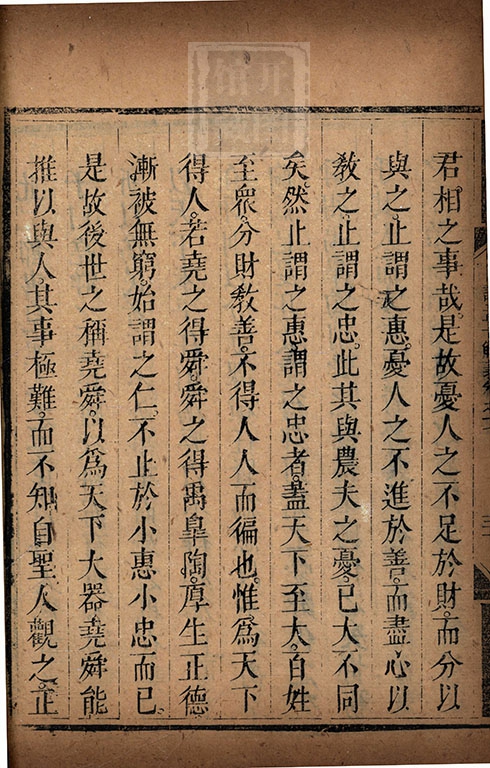 君相之事哉。是故憂人之不足於財。而分以
與之。止謂之惠。憂人之不進於善。而盡心以
敎之。止謂之忠。此其與農夫之憂。已大不同
矣。然止謂之惠。謂之忠者。蓋天下至大。百姓
至衆。分財敎善。不得人人而徧也。惟爲天下
得人。若堯之得舜。舜之得禹臯陶。厚生正德
漸被無窮。始謂之仁。不止於小惠小忠而已。
是故後世之稱堯舜。以爲天下大器。堯舜能
推以與人。其事極難。而不知自聖人觀之。正